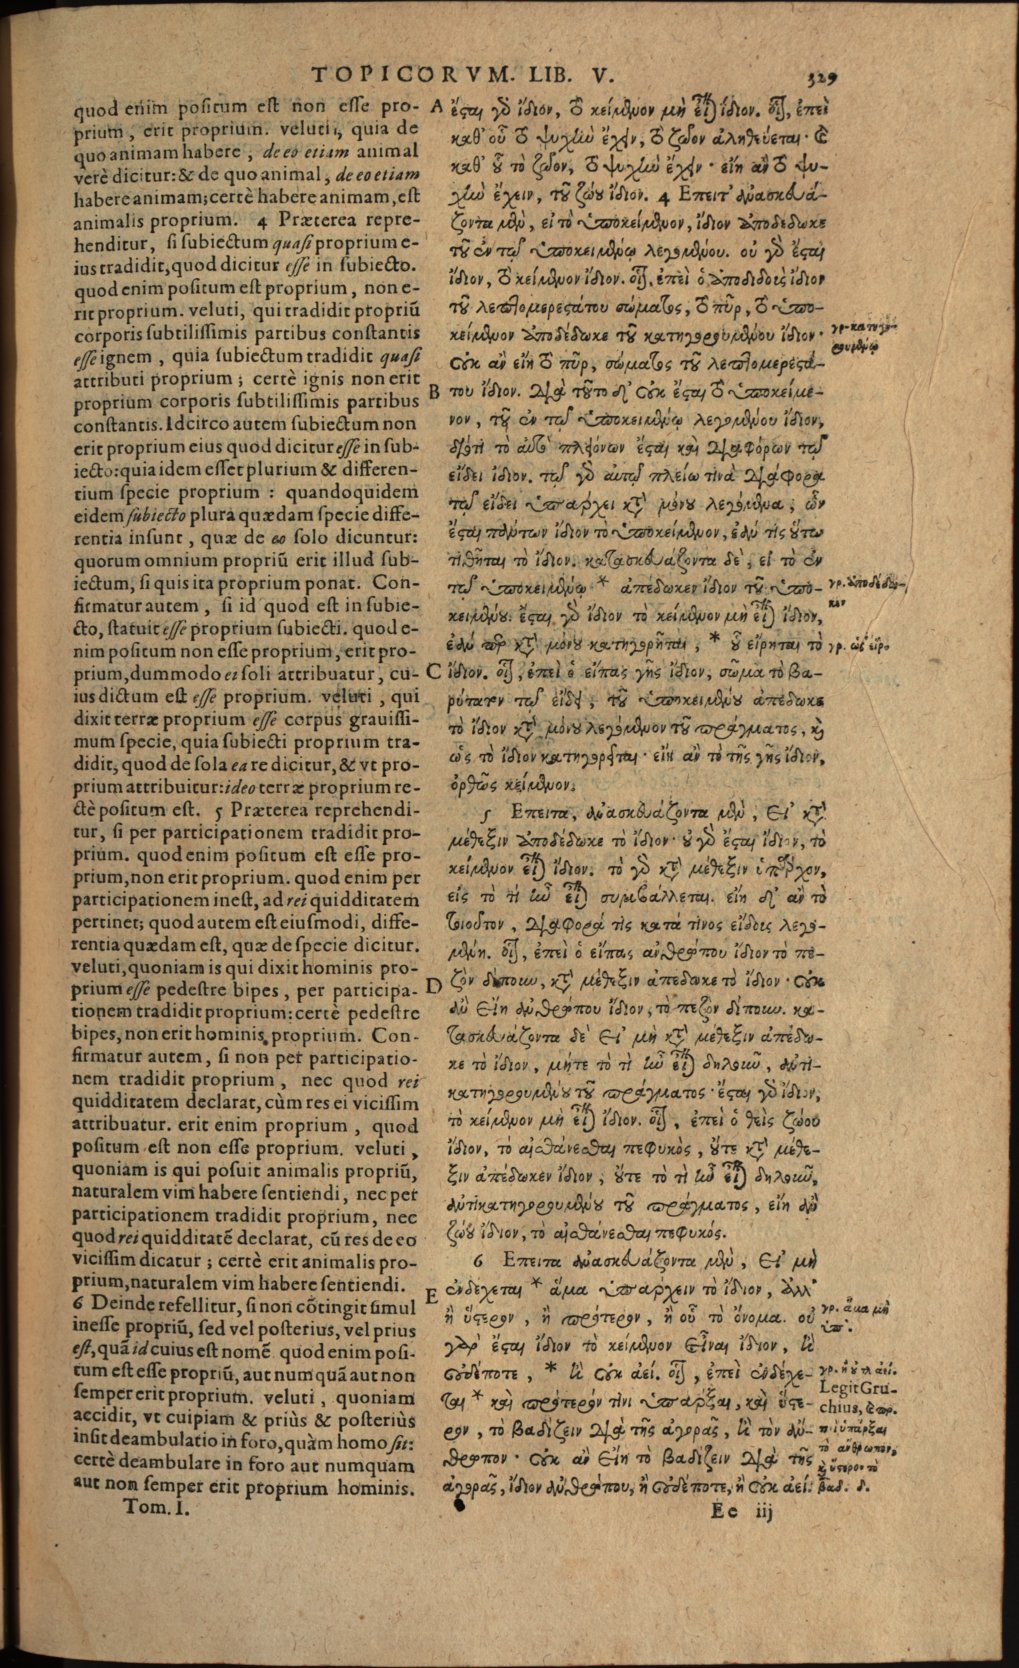 TOPICORVM. LIB. V. 329
quod enim positum est non esse pro-
prium, erit proprium. veluti, quia de
quo animam habere, de eo etiam animal
verè dicitur: & de quo animal, de eo etiam
habere animam; certè habere animam, est
animalis proprium. 4 Præterea repre-
henditur, si subiectum quasi proprium e-
ius tradidit, quod dicitur esse in subiecto.
quod enim positum est proprium, non e-
rit proprium. veluti, qui tradidit propriū
corporis subtilissimis partibus constantis
esse ignem, quia subiectum tradidit quasi
attributi proprium; certè ignis non erit
proprium corporis subtilissimis partibus
constantis. Idcirco autem subiectum non
erit proprium eius quod dicitur esse in sub-
iecto: quia idem esset plurium & differen-
tium specie proprium: quandoquidem
eidem subiecto plura quædam specie diffe-
rentia insunt, quæ de eo solo dicuntur:
quorum omnium propriū erit illud sub-
iectum, si quis ita proprium ponat. Con-
firmatur autem, si id quod est in subie-
cto, statuit esse proprium subiecti. quod e-
nim positum non esse proprium, erit pro-
prium, dummodo ei soli attribuatur, cu-
ius dictum est esse proprium. veluti, qui
dixit terræ proprium esse corpus grauissi-
mum specie, quia subiecti proprium tra-
didit, quod de sola ea re dicitur, & vt pro-
prium attribuitur: ideo terræ proprium re-
ctè positum est. 5 Præterea reprehendi-
tur, si per participationem tradidit pro-
prium. quod enim positum est esse pro-
prium, non erit proprium. quod enim per
participationem inest, ad rei quidditatem
pertinet; quod autem est eiusmodi, diffe-
rentia quædam est, quæ de specie dicitur.
veluti, quoniam is qui dixit hominis pro-
prium esse pedestre bipes, per participa-
tionem tradidit proprium: certè pedestre
bipes, non erit hominis proprium. Con-
firmatur autem, si non per participatio-
nem tradidit proprium, nec quod rei
quidditatem declarat, cùm res ei vicissim
attribuatur. erit enim proprium, quod
positum est non esse proprium. veluti,
quoniam is qui posuit animalis propriū,
naturalem vim habere sentiendi, nec per
participationem tradidit proprium, nec
quod rei quidditatē declarat, cū res de eo
vicissim dicatur; certè erit animalis pro-
prium, naturalem vim habere sentiendi.
6 Deinde refellitur, si non cōtingit simul
inesse propriū, sed vel posterius, vel prius
est, quā id cuius est nomē. quod enim posi-
tum est esse propriū, aut numquā aut non
semper erit proprium. veluti, quoniam
accidit, vt cuipiam & priùs & posteriùs
insit deambulatio in foro, quàm homo sit:
certè deambulare in foro aut numquam
aut non semper erit proprium hominis.
Tom. I.
A ἔσται γὸ ἴδιον, τὸ κείμενον μὴ εἶναι ἴδιον. οἷον, ἐπεὶ
καθ' οὗ τὸ ψυχὴν ἔχειν, τὸ ζῶον ἀληθεύεται· καὶ
καθ' οὗ τὸ ζῶον, τὸ ψυχὴν ἔχειν· εἴη ἂν τὸ ψυ-
χὴν ἔχειν, τοῦ ζώου ἴδιον. 4 Ἔπειτ' ἀνασκευά-
ζοντα μὲν, εἰ τὸ ὑποκείμενον, ἴδιον ἀποδέδωκε
τοῦ ἐν τῷ ὑποκειμένῳ λεγομένου. οὐ γὰρ ἔσται
ἴδιον, τὸ κείμενον ἴδιον. οἷον, ἐπεὶ ὁ ἀποδιδοὺς ἴδιον
τοῦ λεπτομερεστάτου σώματος, τὸ πῦρ, τὸ ὑπο-
κείμενον ἀποδέδωκε τοῦ κατηγορουμένου ἴδιον·
οὐκ ἂν εἴη τὸ πῦρ, σώματος τοῦ λεπτομερεστά-
B του ἴδιον. διὰ τοῦτο δ' οὐκ ἔσται τὸ ὑποκείμε-
νον, τοῦ ἐν τῷ ὑποκειμένῳ λεγομένου ἴδιον,
διότι τὸ αὐτὸ πλειόνων ἔσται καὶ διαφόρων τῷ
εἴδει ἴδιον. τῷ γὰρ αὐτῷ πλείω τινὰ διάφορα
τῷ εἴδει ὑπάρχει κατὰ μόνου λεγόμενα, ὧν
ἔσται πάντων ἴδιον τὸ ὑποκείμενον, ἐάν τις οὕτω
τιθῆται τὸ ἴδιον. κατασκευάζοντα δὲ, εἰ τὸ ἐν
τῷ ὑποκειμένῳ * ἀπέδωκεν ἴδιον τοῦ ὑπο-
κειμένου. ἔσται γὰρ ἴδιον τὸ κείμενον μὴ εἶναι ἴδιον,
ἐάν περ κατὰ μόνου κατηγορῆται, * οὗ εἴρηται τὸ
C ἴδιον. οἷον, ἐπεὶ ὁ εἴπας γῆς ἴδιον, σῶμα τὸ βα-
ρύτατον τῷ εἴδει, τοῦ ὑποκειμένου ἀπέδωκε
τὸ ἴδιον κατὰ μόνου λεγόμενον τοῦ πράγματος, καὶ
ὡς τὸ ἴδιον κατηγορεῖται· εἴη ἂν τὸ τῆς γῆς ἴδιον,
ὀρθῶς κείμενον.
5 Ἔπειτα, ἀνασκευάζοντα μὲν, εἰ κατὰ
μέθεξιν ἀποδέδωκε τὸ ἴδιον· οὐ γὰρ ἔσται ἴδιον, τὸ
κείμενον εἶναι ἴδιον. τὸ γὰρ κατὰ μέθεξιν ὑπάρχον,
εἰς τὸ τί ἦν εἶναι συμβάλλεται. εἴη δ' ἂν τὸ
τοιοῦτον, διαφορά τις κατά τινος εἴδους λεγο-
μένη. οἷον, ἐπεὶ ὁ εἴπας ἀνθρώπου ἴδιον τὸ πε-
D ζὸν δίπουν, κατὰ μέθεξιν ἀπέδωκε τὸ ἴδιον· οὐκ
ἂν εἴη ἀνθρώπου ἴδιον, τὸ πεζὸν δίπουν. κα-
τασκευάζοντα δὲ εἰ μὴ κατὰ μέθεξιν ἀπέδω-
κε τὸ ἴδιον, μήτε τὸ τί ἦν εἶναι δηλοῦν, ἀντι-
κατηγορουμένου τοῦ πράγματος· ἔσται γὰρ ἴδιον,
τὸ κείμενον μὴ εἶναι ἴδιον. οἷον, ἐπεὶ ὁ θεὶς ζώου
ἴδιον, τὸ αἰσθάνεσθαι πεφυκὸς, οὔτε κατὰ μέθε-
ξιν ἀπέδωκεν ἴδιον, οὔτε τὸ τί ἦν εἶναι δηλοῦν,
ἀντικατηγορουμένου τοῦ πράγματος, εἴη ἂν
ζώου ἴδιον, τὸ αἰσθάνεσθαι πεφυκός.
6 Ἔπειτα ἀνασκευάζοντα μὲν, εἰ μὴ
E ἐνδέχεται * ἅμα ὑπάρχειν τὸ ἴδιον, ἀλλ'
ἢ ὕστερον, ἢ πρότερον, ἢ οὗ τὸ ὄνομα. οὐ
γὰρ ἔσται ἴδιον τὸ κείμενον εἶναι ἴδιον, ἢ
οὐδέποτε, * ἢ οὐκ ἀεί. οἷον, ἐπεὶ ἐνδέχε-
ται * καὶ πρότερόν τινι ὑπάρξαι, καὶ ὕστε-
ρον, τὸ βαδίζειν διὰ τῆς ἀγορᾶς, ἢ τὸν ἄν-
θρωπον· οὐκ ἂν εἴη τὸ βαδίζειν διὰ τῆς
ἀγορᾶς, ἴδιον ἀνθρώπου, ἢ οὐδέποτε, ἢ οὐκ ἀεί.
Ee iij
γρ. κατηγο-
ρουμένῳ
γρ. ἀποδέδω-
κεν
γρ. ὡς εἴρη-
γρ. ἅμα μὴ
ὑπ'.
γρ. ἢ οὔτι ἀεί.
Legit Gru-
chius, καὶ πρ.
τινὶ ὑπάρξαι
τὸ ἄνθρωπον,
καὶ ὕστερον τὸ
βαδ. δ.